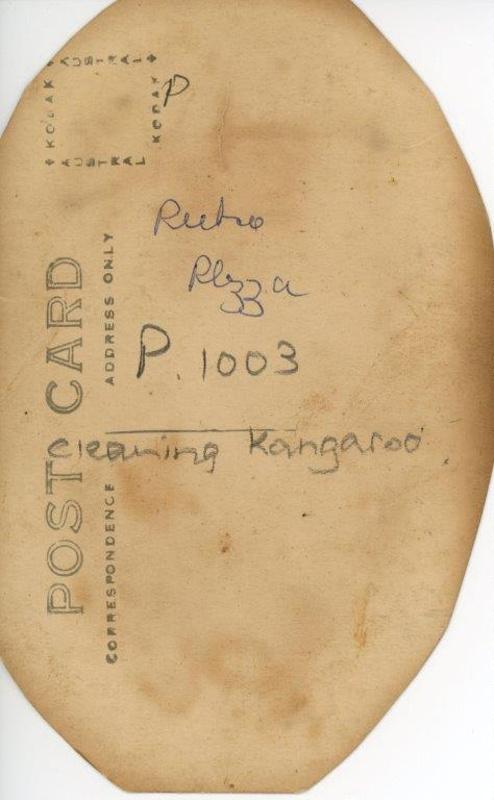 KODAK AUSTRAL
KODAK AUSTRAL
P
Pietro
Plozza
P. 1003
Cleaning Kangaroo
POST CARD
ADDRESS ONLY
CORRESPONDENCE